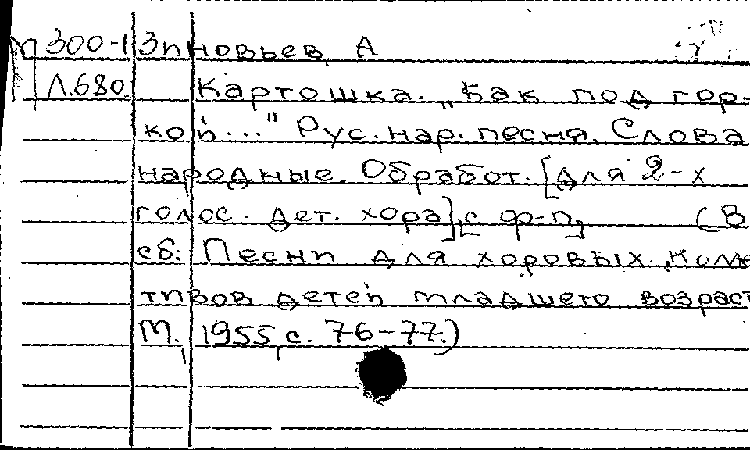 М 300-1 Зиновьев, А
Л.680. Картошка. „Как под гор-
кой..." Рус. нар. песня. Слова
народные. Обработ. [для 2-х
голос. дет. хора], [с ф-п] (В
сб: Песни для хоровых колле
тивов детей младшего возраст
М. 1955, с. 76-77.)